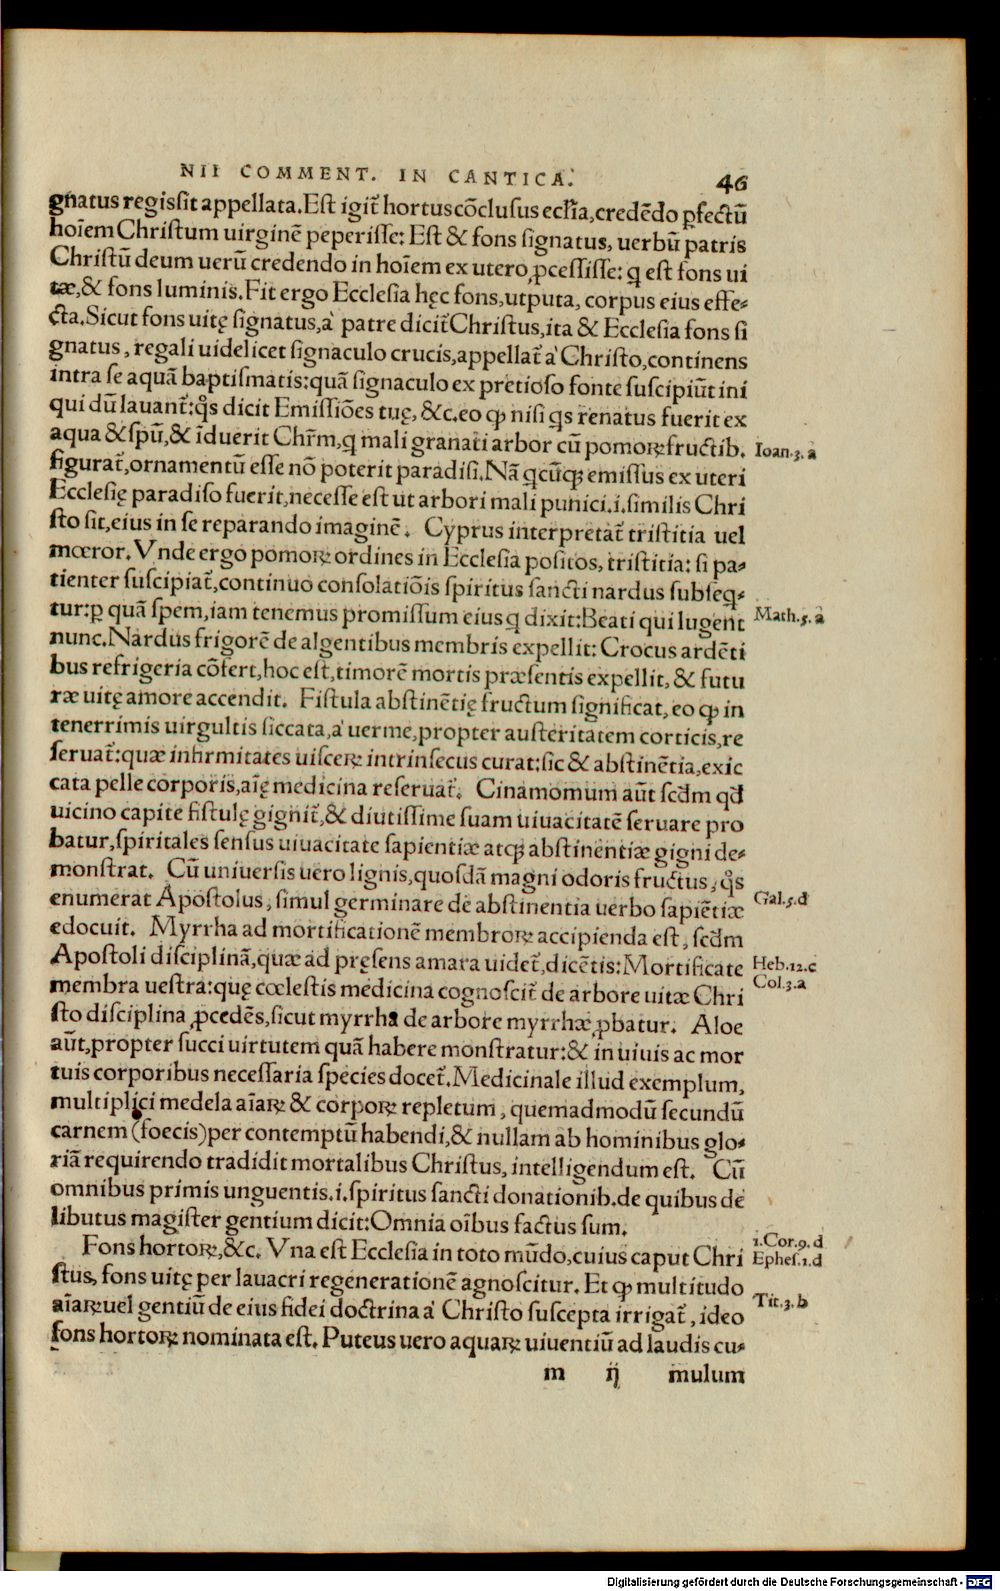 NII COMMENT. IN CANTICA.
46
gnatus regis sit appellata. Est igit̃ hortus cõclusus eccl̃ia, credẽdo ꝑfectũ
hoĩem Christum uirginẽ peperisse: Est & fons signatus, uerbũ patris
Christũ deum uerũ credendo in hoĩem ex utero ꝓcessisse: q̃ est fons ui
tæ, & fons luminis. Fit ergo Ecclesia hęc fons, utputa, corpus eius effe-
cta. Sicut fons uitę signatus, à patre dicit̃ Christus, ita & Ecclesia fons si
gnatus, regali uidelicet signaculo crucis, appellat̃ à Christo, continens
intra se aquã baptismatis: quã signaculo ex pretioso fonte suscipiũt ini
qui dũ lauant̃: q̃s dicit Emissiões tuę, &c. eo ꝙ nisi q̃s renatus fuerit ex
aqua & spũ, & ĩduerit Chr̃m, q̃ mali granati arbor cũ pomoꝝ fructib.
Ioan.3.a
figurat̃, ornamentũ esse nõ poterit paradisi. Nã q̃cũqꝫ emissus ex uteri
Ecclesię paradiso fuerit, necesse est ut arbori mali punici .i. similis Chri
sto sit, eius in se reparando imaginẽ. Cyprus interpretat̃ tristitia uel
mœror. Vnde ergo pomoꝝ ordines in Ecclesia positos, tristitia: si pa-
tienter suscipiat̃, continuo consolatiõis spiritus sancti nardus subseq̃-
tur: ꝑ quã spem, iam tenemus promissum eius q̃ dixit: Beati qui lugent
Math.5.a
nunc. Nardus frigorẽ de algentibus membris expellit: Crocus ardẽti
bus refrigeria cõfert, hoc est, timorẽ mortis præsentis expellit, & futu
ræ uitę amore accendit. Fistula abstinẽtię fructum significat, eo ꝙ in
tenerrimis uirgultis siccata, à uerme, propter austeritatem corticis, re
seruat̃: quæ infirmitates uisceꝝ intrinsecus curat: sic & abstinẽtia, exic
cata pelle corporis, aĩę medicina reseruat̃. Cinamomum aũt scđm qđ
uicino capite fistulę gignit̃, & diutissime suam uiuacitatẽ seruare pro
batur, spiritales sensus uiuacitate sapientiæ atqꝫ abstinentiæ gigni de-
monstrat. Cũ uniuersis uero lignis, quosdã magni odoris fructus, q̃s
enumerat Apostolus, simul germinare de abstinentia uerbo sapiẽtiæ
Gal.5.d
edocuit. Myrrha ad mortificationẽ membroꝝ accipienda est, scđm
Apostoli disciplinã, quæ ad pręsens amara uidet̃, dicẽtis: Mortificate
Heb.12.c
membra uestra: quę cœlestis medicina cognoscit̃ de arbore uitæ Chri
Col.3.a
sto disciplina ꝓcedẽs, sicut myrrha de arbore myrrhæ ꝓbatur. Aloe
aũt, propter succi uirtutem quã habere monstratur: & in uiuis ac mor
tuis corporibus necessaria species docet̃. Medicinale illud exemplum,
multiplici medela aĩaꝝ & corpoꝝ repletum, quemadmodũ secundũ
carnem (foecis) per contemptũ habendi, & nullam ab hominibus glo-
riã requirendo tradidit mortalibus Christus, intelligendum est. Cũ
omnibus primis unguentis .i. spiritus sancti donationib. de quibus de
libutus magister gentium dicit: Omnia oĩbus factus sum.
1.Cor.9.d
Fons hortoꝝ, &c. Vna est Ecclesia in toto mũdo, cuius caput Chri
Ephes.1.d
stus, fons uitę per lauacri regenerationẽ agnoscitur. Et ꝙ multitudo
aĩaꝝ uel gentiũ de eius fidei doctrina à Christo suscepta irrigat̃, ideo
Tit.3.b
fons hortoꝝ nominata est. Puteus uero aquaꝝ uiuentiũ ad laudis cu-
m ij mulum
Digitalisierung gefördert durch die Deutsche Forschungsgemeinschaft - DFG